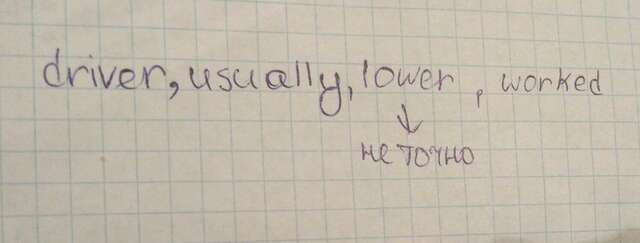 driver, usually, lower, worked
не точно